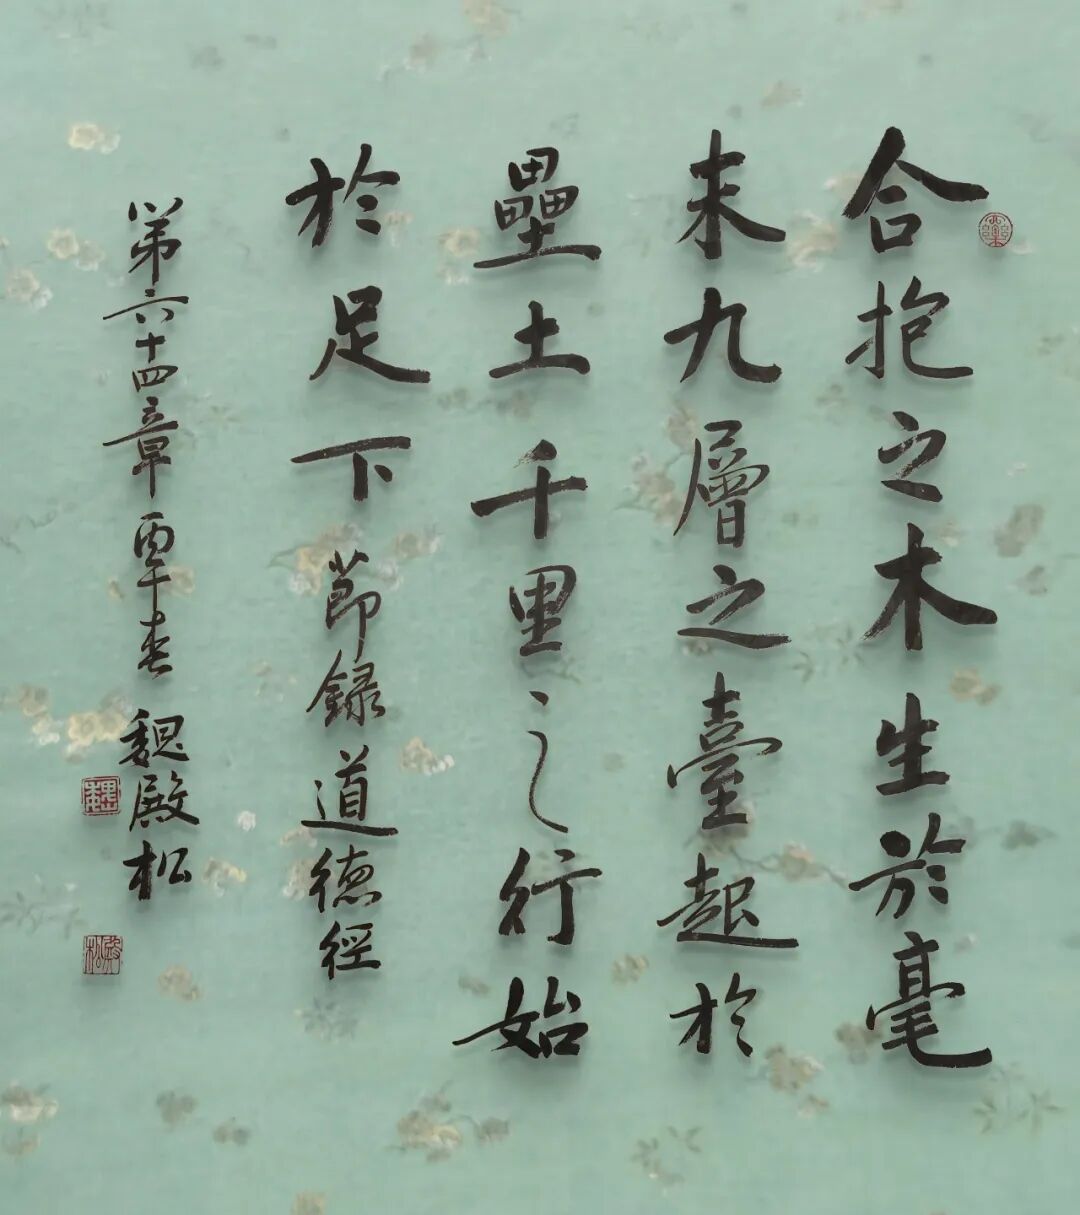 合抱之木生於毫
末九層之臺起於
壘土千里之行始
於足下 節録道德經
第六十四章 丙午春 魏殿松